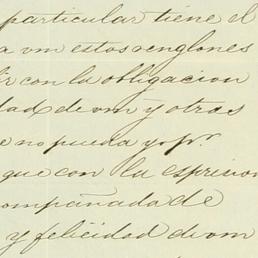 particular tiene el
a vm estos renglones
ir con la obligacion
dad de vm y otras
e no pueda yo pr.
que con la espricion
ompañada de
y felicidad de vm